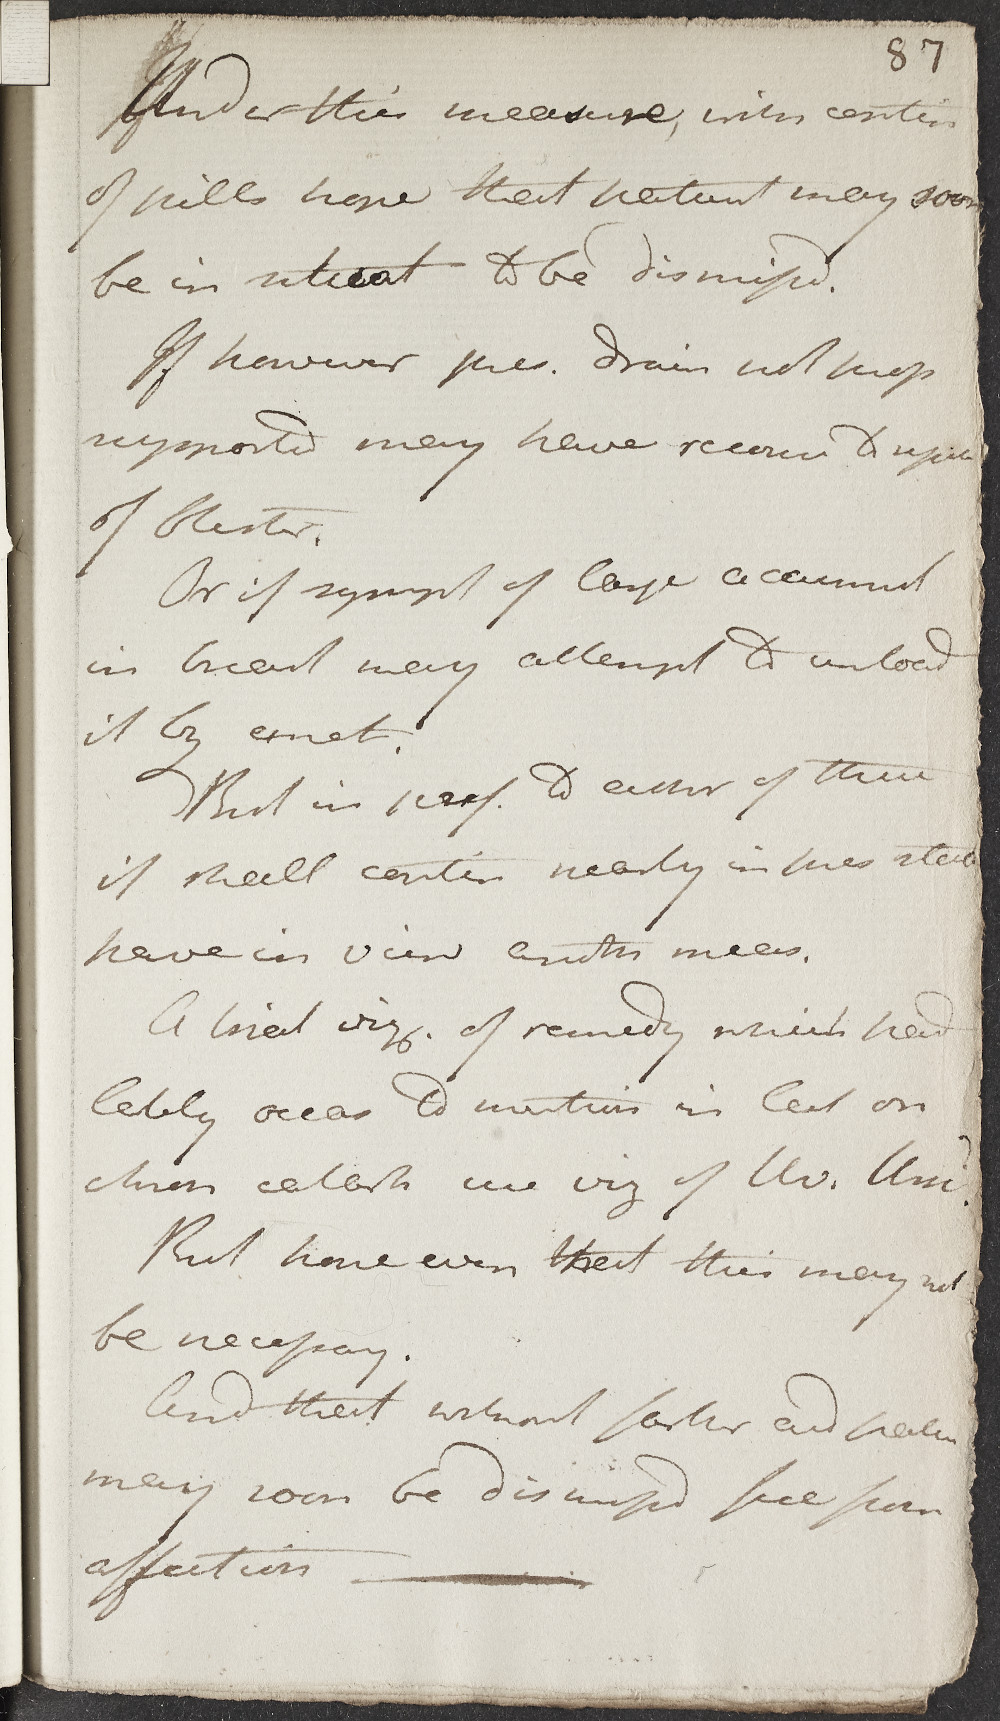 87
Under this measure, with contin
of pills hope that patient may soon
be in situat to be dismissd.
If however pres. drain not prop
supported may have recours to repet
of blister.
Or if sympt of large accumul
in breast may attempt to unload
it by emet.
But in pref. to either of these
if shall contin nearly in pres state
have in view anoth meas.
A trial viz. of remedy which had
lately occas to mention in lect on
chron catarh use viz of Uv. Ursi.
But hope even that this may not
be necessary.
And that without farther aid patien
may soon be dismissd free from
affection